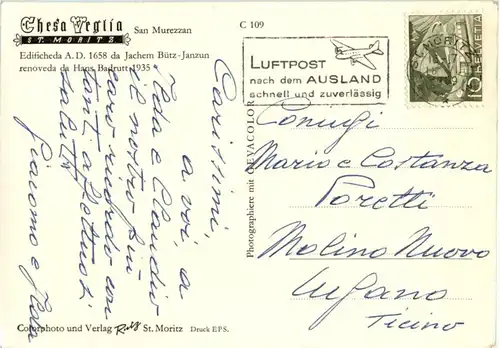 Chesa Veglia
ST. MORITZ
San Murezzan
Edificheda A. D. 1658 da Jachem Bütz-Janzun
renoveda da Hans Badrutt 1935
C 109
LUFTPOST
nach dem AUSLAND
schnell und zuverlässig
ST. MORITZ
HELVETIA
10
Carissimi,
a voi, a
Neda e Claudio
il nostro sin
caro ricordo con
tanti affettuosi
saluti
Giacomo e
Photographiere mit DEVACOLOR
Coniugi
Mario e Costanza
Poretti
Molino Nuovo
Lugano
Ticino
Colorphoto und Verlag Rolf St. Moritz Druck EPS.